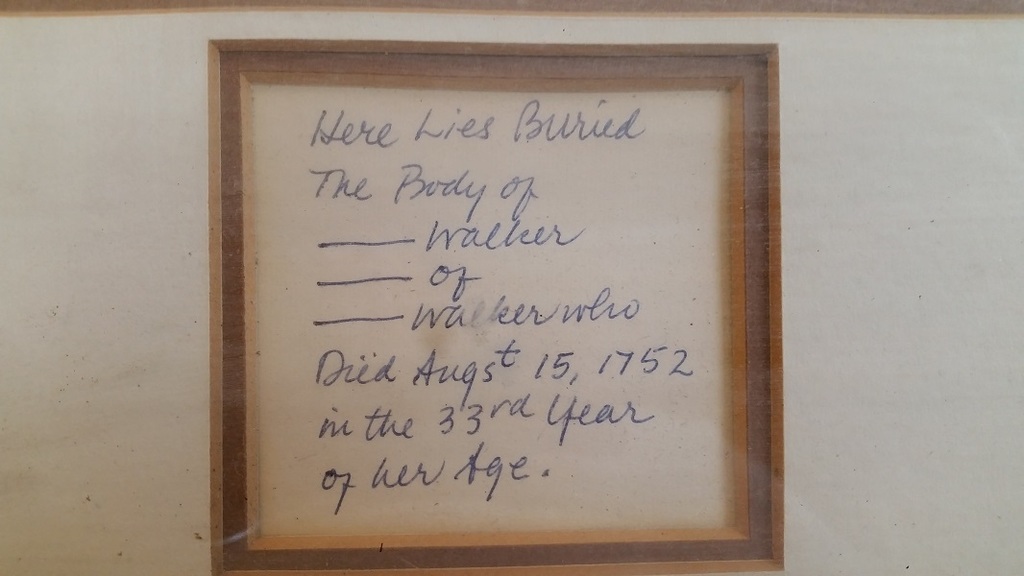 Here Lies Buried
The Body of
—— Walker
—— of
—— Walker who
Died Augst 15, 1752
in the 33rd Year
of her Age.